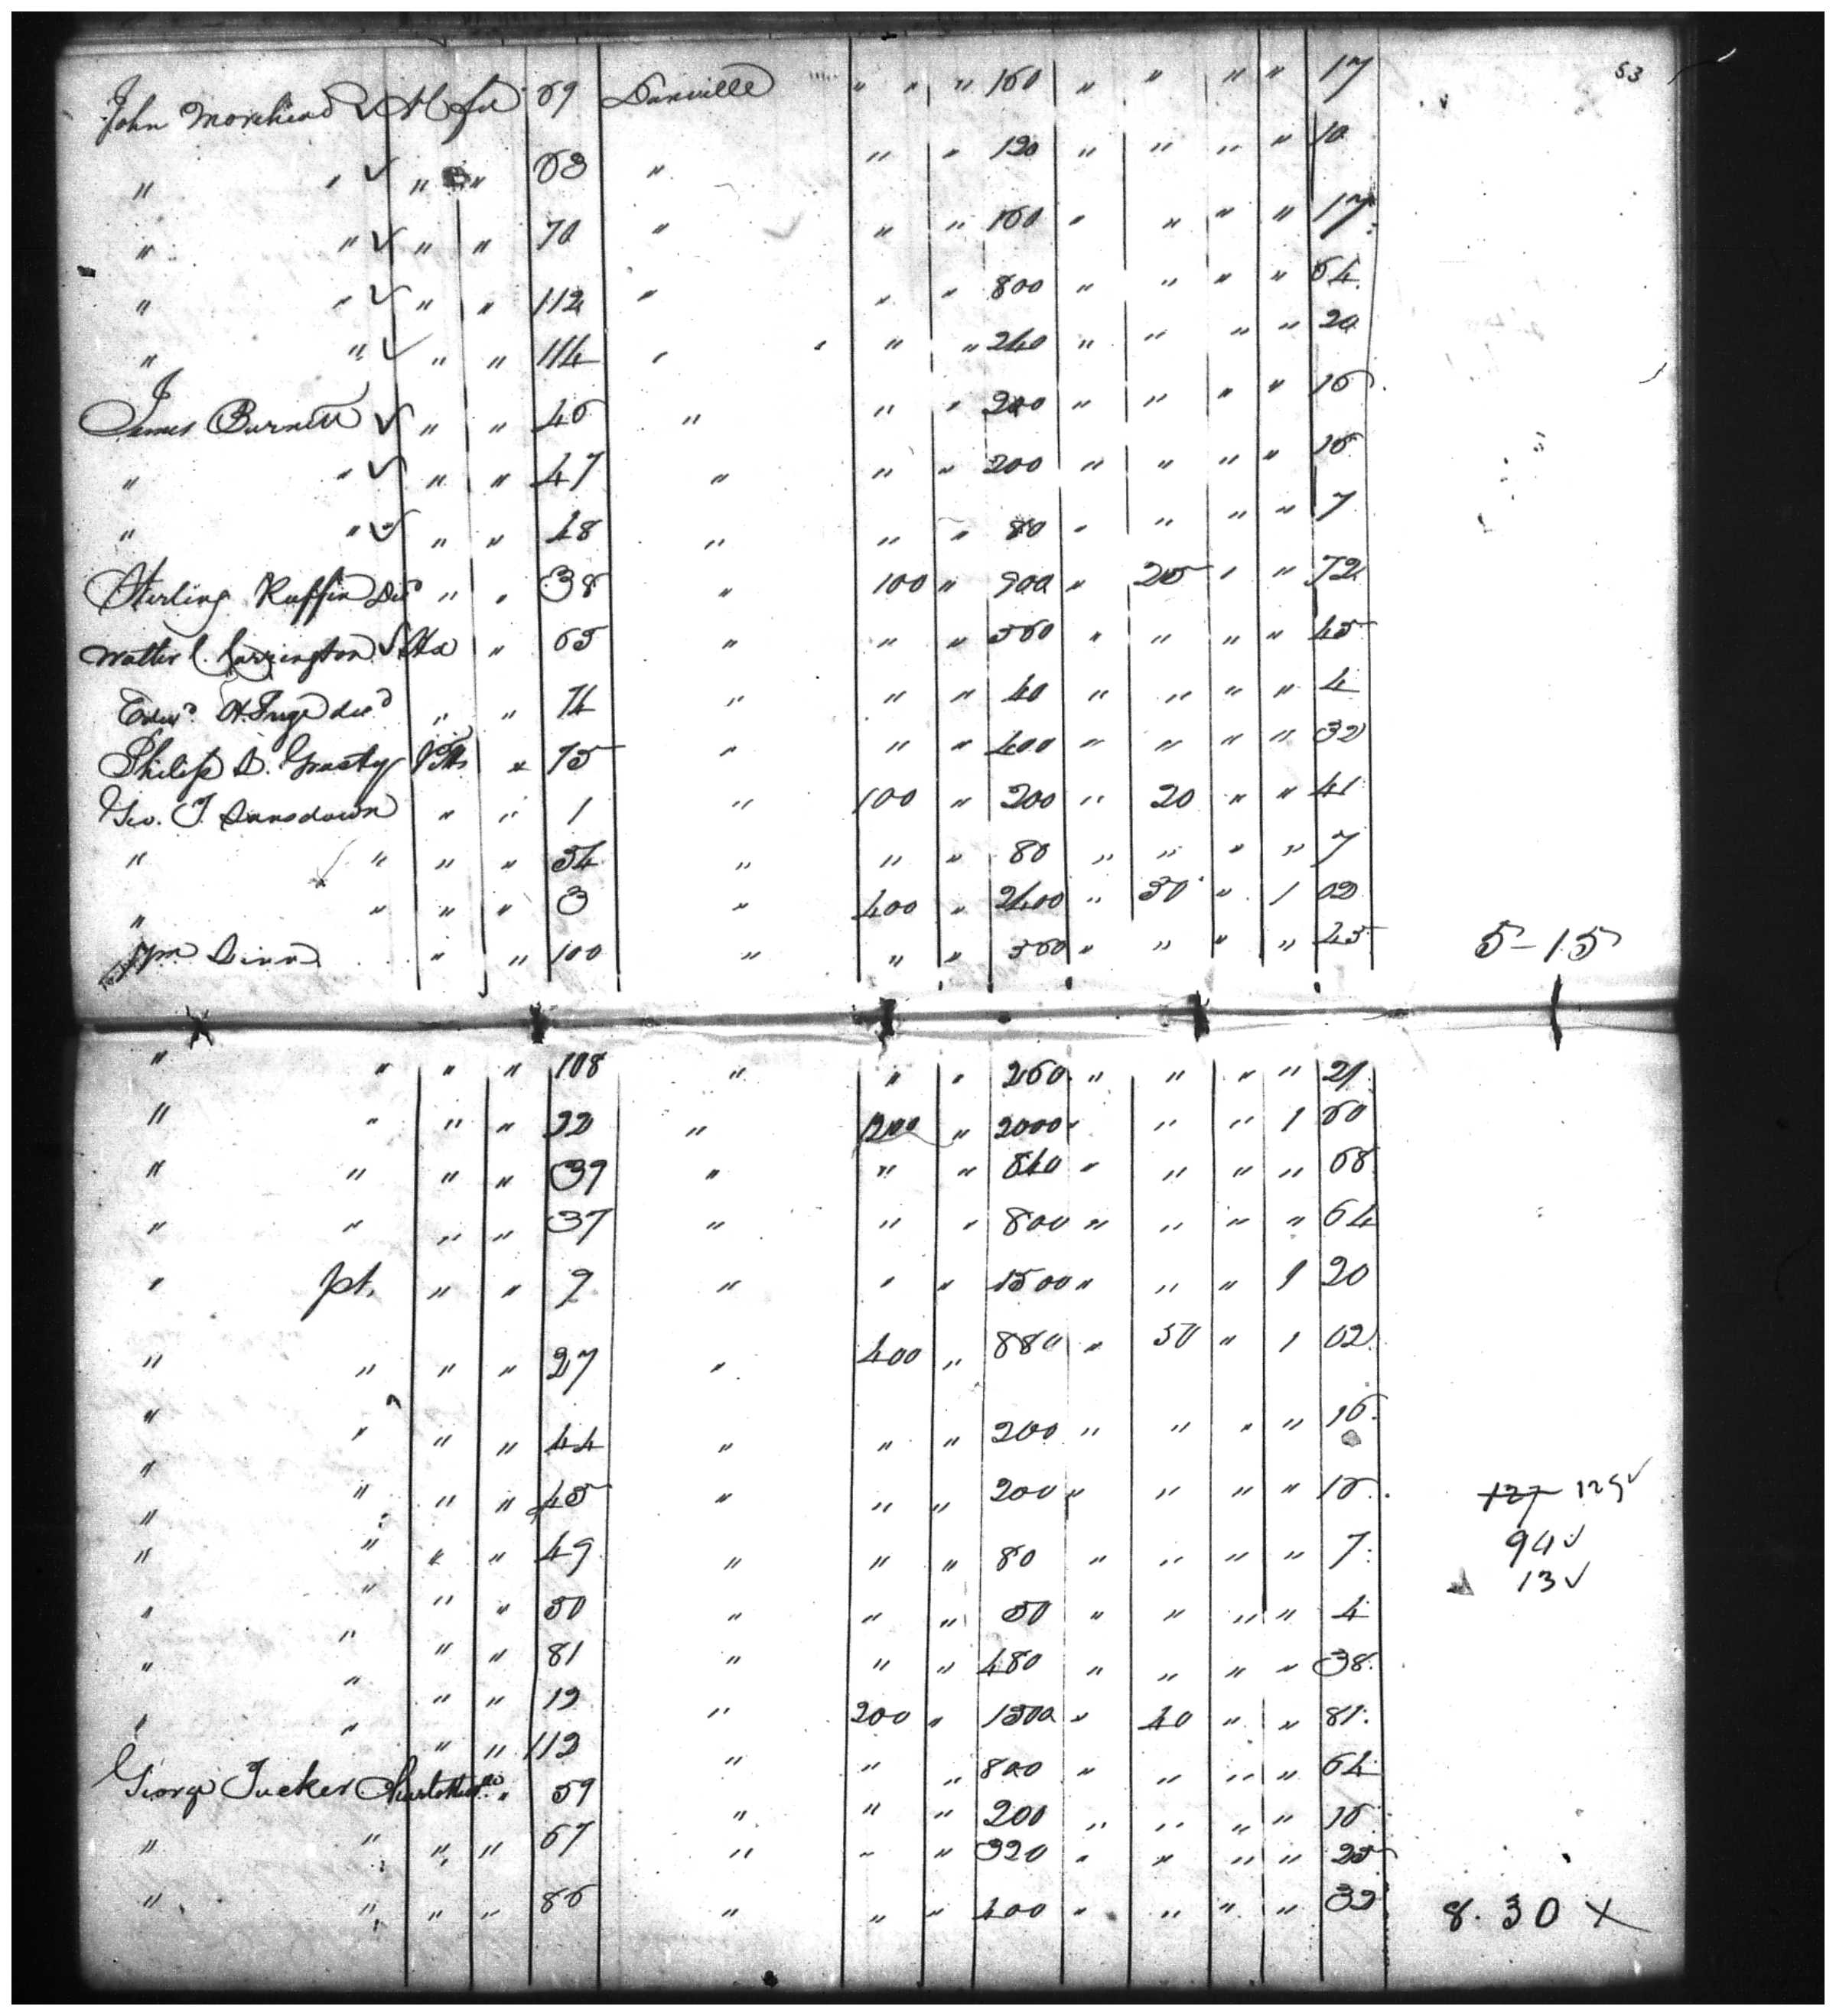 53
John Morehead √ N C fee 69 Danville " " " 160 " " " " 17
" " √ " " 63 " " " 120 " " " " 10
" " √ " " 70 " " " 160 " " " " 17
" " √ " " 112 " " " 800 " " " " 64
" " √ " " 114 " " " 240 " " " " 20
James Burnett √ " " 46 " " " 200 " " " " 16
" " √ " " 47 " " " 200 " " " " 16
" " √ " " 48 " " " 80 " " " " 7
Sterling Ruffin Decd " " 38 " 100 " 900 " 25 " " 72
Walter C. Carrington √ Hx " 65 " " " 560 " " " " 45
Edwd. H. Inge decd " " 74 " " " 40 " " " " 4
Philip D. Grasty Pitts " 75 " " " 400 " " " " 32
Geo. T. Lansdown " " 1 " 100 " 200 " 20 " " 41
" " " " 54 " " " 80 " " " " 7
" " " " 3 " 400 " 2400 " 50 " 1 02
Wm Linn " " 100 " " " 560 " " " " 45 5-15
" " " " 108 " " " 260 " " " " 21
" " " " 22 " 1200 " 2000 " " " 1 60
" " " " 39 " " " 840 " " " " 68
" " " " 37 " " " 800 " " " " 64
" pt. " " 9 " " " 1500 " " " 1 20
" " " " 27 " 400 " 880 " 50 " 1 02
" " " " 44 " " " 200 " " " " 16
" " " " 45 " " " 200 " " " " 16 127 129√
" " " " 49 " " " 80 " " " " 7 94√
" " " " 50 " " " 50 " " " " 4 13√
" " " " 81 " " " 480 " " " " 38
" " " " 12 " 200 " 1500 " 40 " " 81
" " " " 112 " " " 800 " " " " 64
George Tucker Charlottesville " 59 " " " 200 " " " " 16
" " " " 67 " " " 320 " " " " 25
" " " " 86 " " " 400 " " " " 32 8.30 X